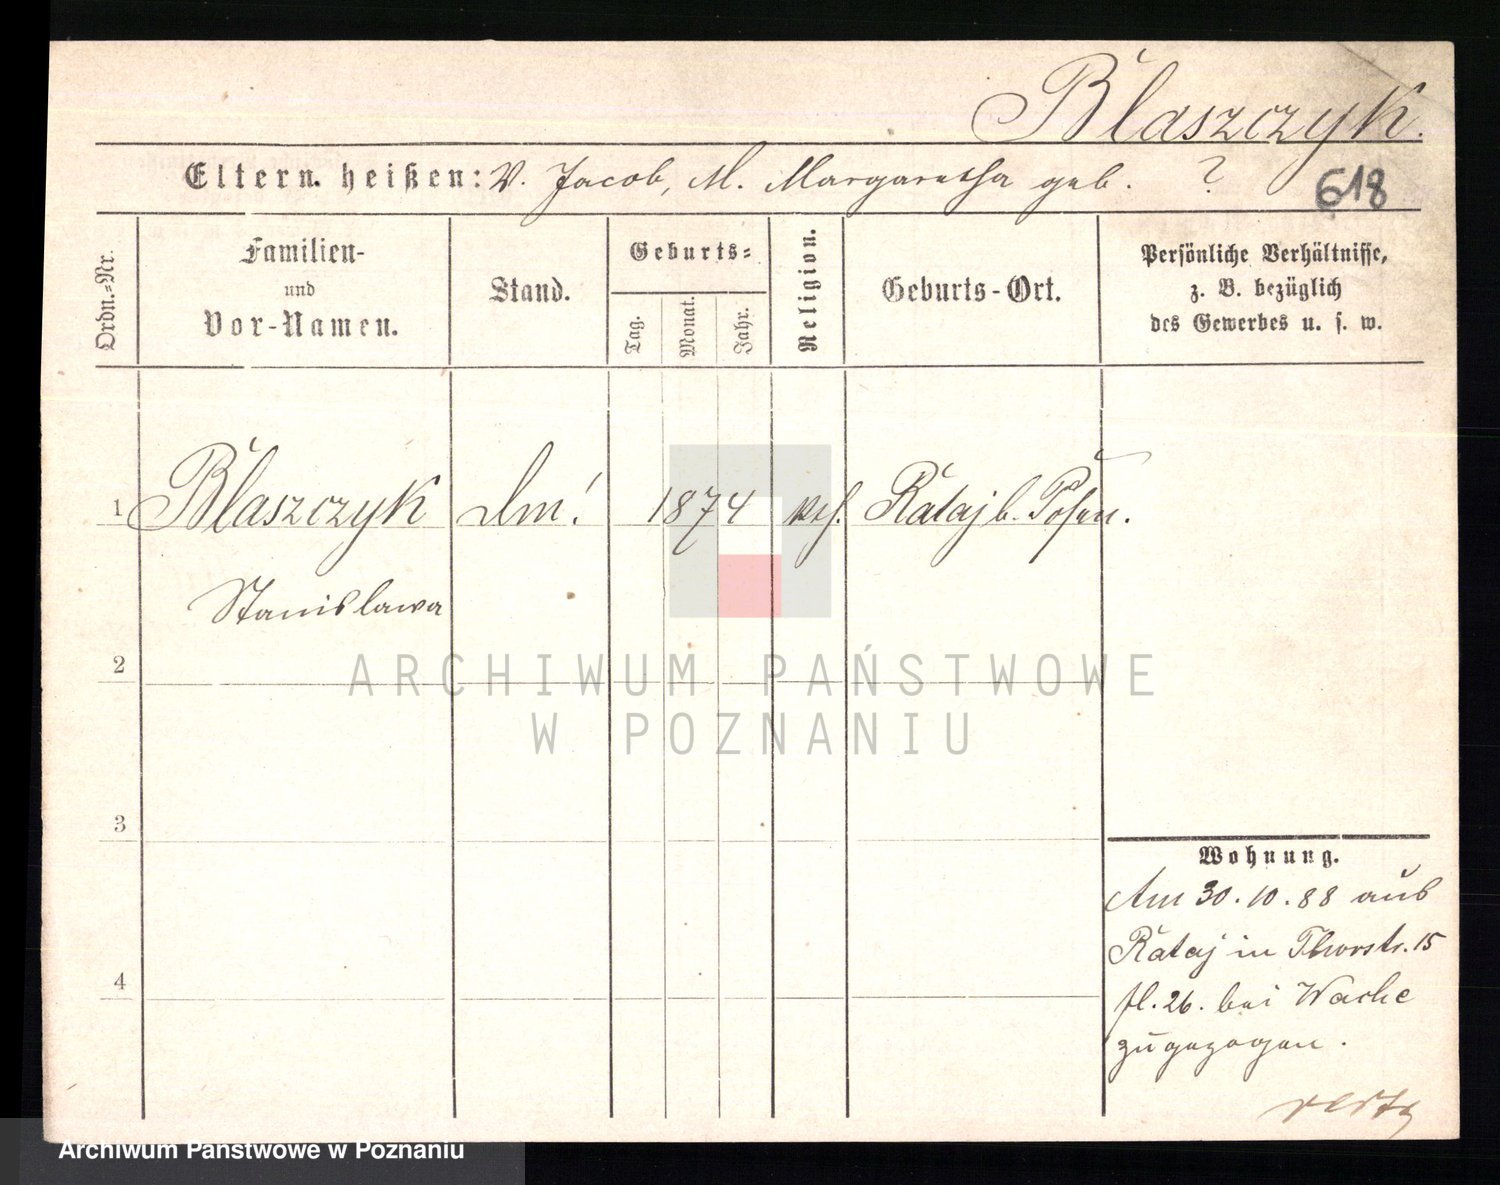 Blaszczyk.
Eltern heißen: V. Jacob, M. Margaretha geb. ?
618
Ordn.=Nr.
Familien-
und
Vor-Namen.
Stand.
Geburts=
Tag.
Monat.
Jahr.
Religion.
Geburts-Ort.
Persönliche Verhältnisse,
z. B. bezüglich
des Gewerbes u. s. w.
1 Blaszczyk 1874 Rataj b. Posen.
Stanislawa
2
3
4
Wohnung.
Am 30.10.88 aus
Rataj in Thorstr. 15
fl. 26. bei Wache
zugezogen.
ARCHIWUM PAŃSTWOWE
W POZNANIU
Archiwum Państwowe w Poznaniu